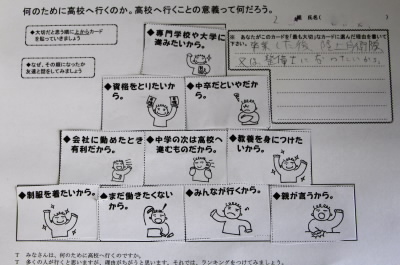 何のために高校へ行くのか。高校へ行くことの意義って何だろう。
氏名(
)
◆大切だと思う順に上からカードを
貼っていきましょう
◆なぜ、その順になったか
友達と話をしてみましょう
◆専門学校や大学に
進みたいから。
※ あなたがこのカードを「最も大切」なカードに選んだ理由を書いて
下さい。
卒業した後、陸上自衛隊
又は、整備士になりたいから。
◆資格をとりたい
から。
◆中卒だといやだか
ら。
◆会社に勤めたとき
有利だから。
◆中学の次は高校へ
進むものだから。
◆教養を身につけた
いから。
◆制服を着たいから。
◆まだ働きたくない
から。
◆みんなが行くから。
◆親が言うから。
T みなさんは、何のために高校へ行くのですか。
T 多くの人が行くと思いますが、理由がちがうと思います。それでは、ランキングをつけてみましょう。